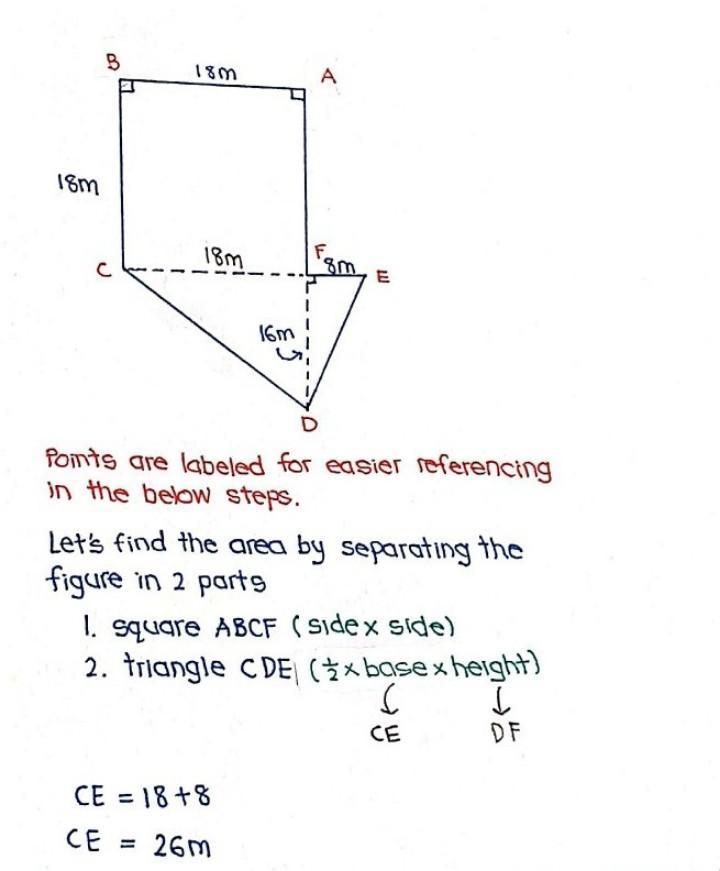 B
18m
A
18m
18m
F
8m
C
E
16m
D
Points are labeled for easier referencing
in the below steps.
Let's find the area by separating the
figure in 2 parts
1. square ABCF (side x side)
2. triangle CDE (½ x base x height)
CE
DF
CE = 18+8
CE = 26m